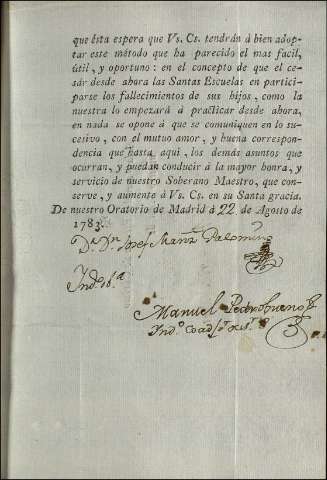 que ésta espera que Vs. Cs. tendrán á bien adop-
tar este método que ha parecido el mas facil,
útil, y oportuno: en el concepto de que el ce-
sár desde ahora las Santas Escuelas en partici-
parse los fallecimientos de sus hijos, como la
nuestra lo empezará á practicar desde ahora,
en nada se opone á que se comuniquen en lo su-
cesivo, con el mutuo amor, y buena correspon-
dencia que hasta aqui, los demás asuntos que
ocurran, y puedan conducir á la mayor honra, y
servicio de nuestro Soberano Maestro, que con-
serve, y aumente á Vs. Cs. en su Santa gracia.
De nuestro Oratorio de Madrid á 22 de Agosto de
1783.
Dr. Dn. Josef Palomino
Manuel Pedro Bueno